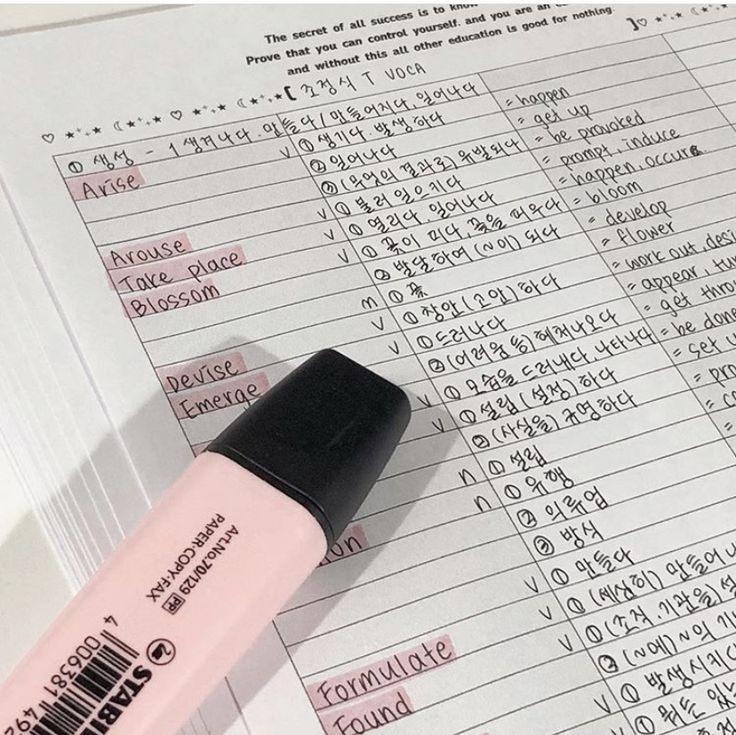 The secret of all success is to know
Prove that you can control yourself. and you are an
and without this all other education is good for nothing.
[ 조정식 T VOCA ]
① 생성 - 1 생겨나다. 만들다 / 만들어지다, 일어나다
Arise v ① 생기다. 발생하다 = happen
② 일어나다 = get up
③ (무엇의 결과로) 유발되다 = be provoked
Arouse v ① 불러 일으키다 = prompt, induce
Take place v ① 열리다, 일어나다 = happen, occur
Blossom v ① 꽃이 피다, 꽃을 피우다 = bloom
② 발달하여 (~이) 되다 = develop
n ① 꽃 = flower
Devise v ① 창안(고안)하다 = work out, desi
Emerge v ① 드러나다 = appear, tur
② (어려움 등) 헤쳐나오다 = get thro
v ① 모습을 드러내다, 나타나다 = be done
v ① 설립(설정)하다 = set u
② (사실을) 규명하다 = pro
n ① 설립 = co
n ① 유행 =
② 의류업
③ 방식
on
v ① 만들다
v ① (세심히) 만들어
Formulate v ① (조직, 기관을) 설
Found ② (~에) ~의 기
v ① 발생시키다
v
Art.No.70/129 PP
PAPER·COPY·FAX
STABI
4 006381 492